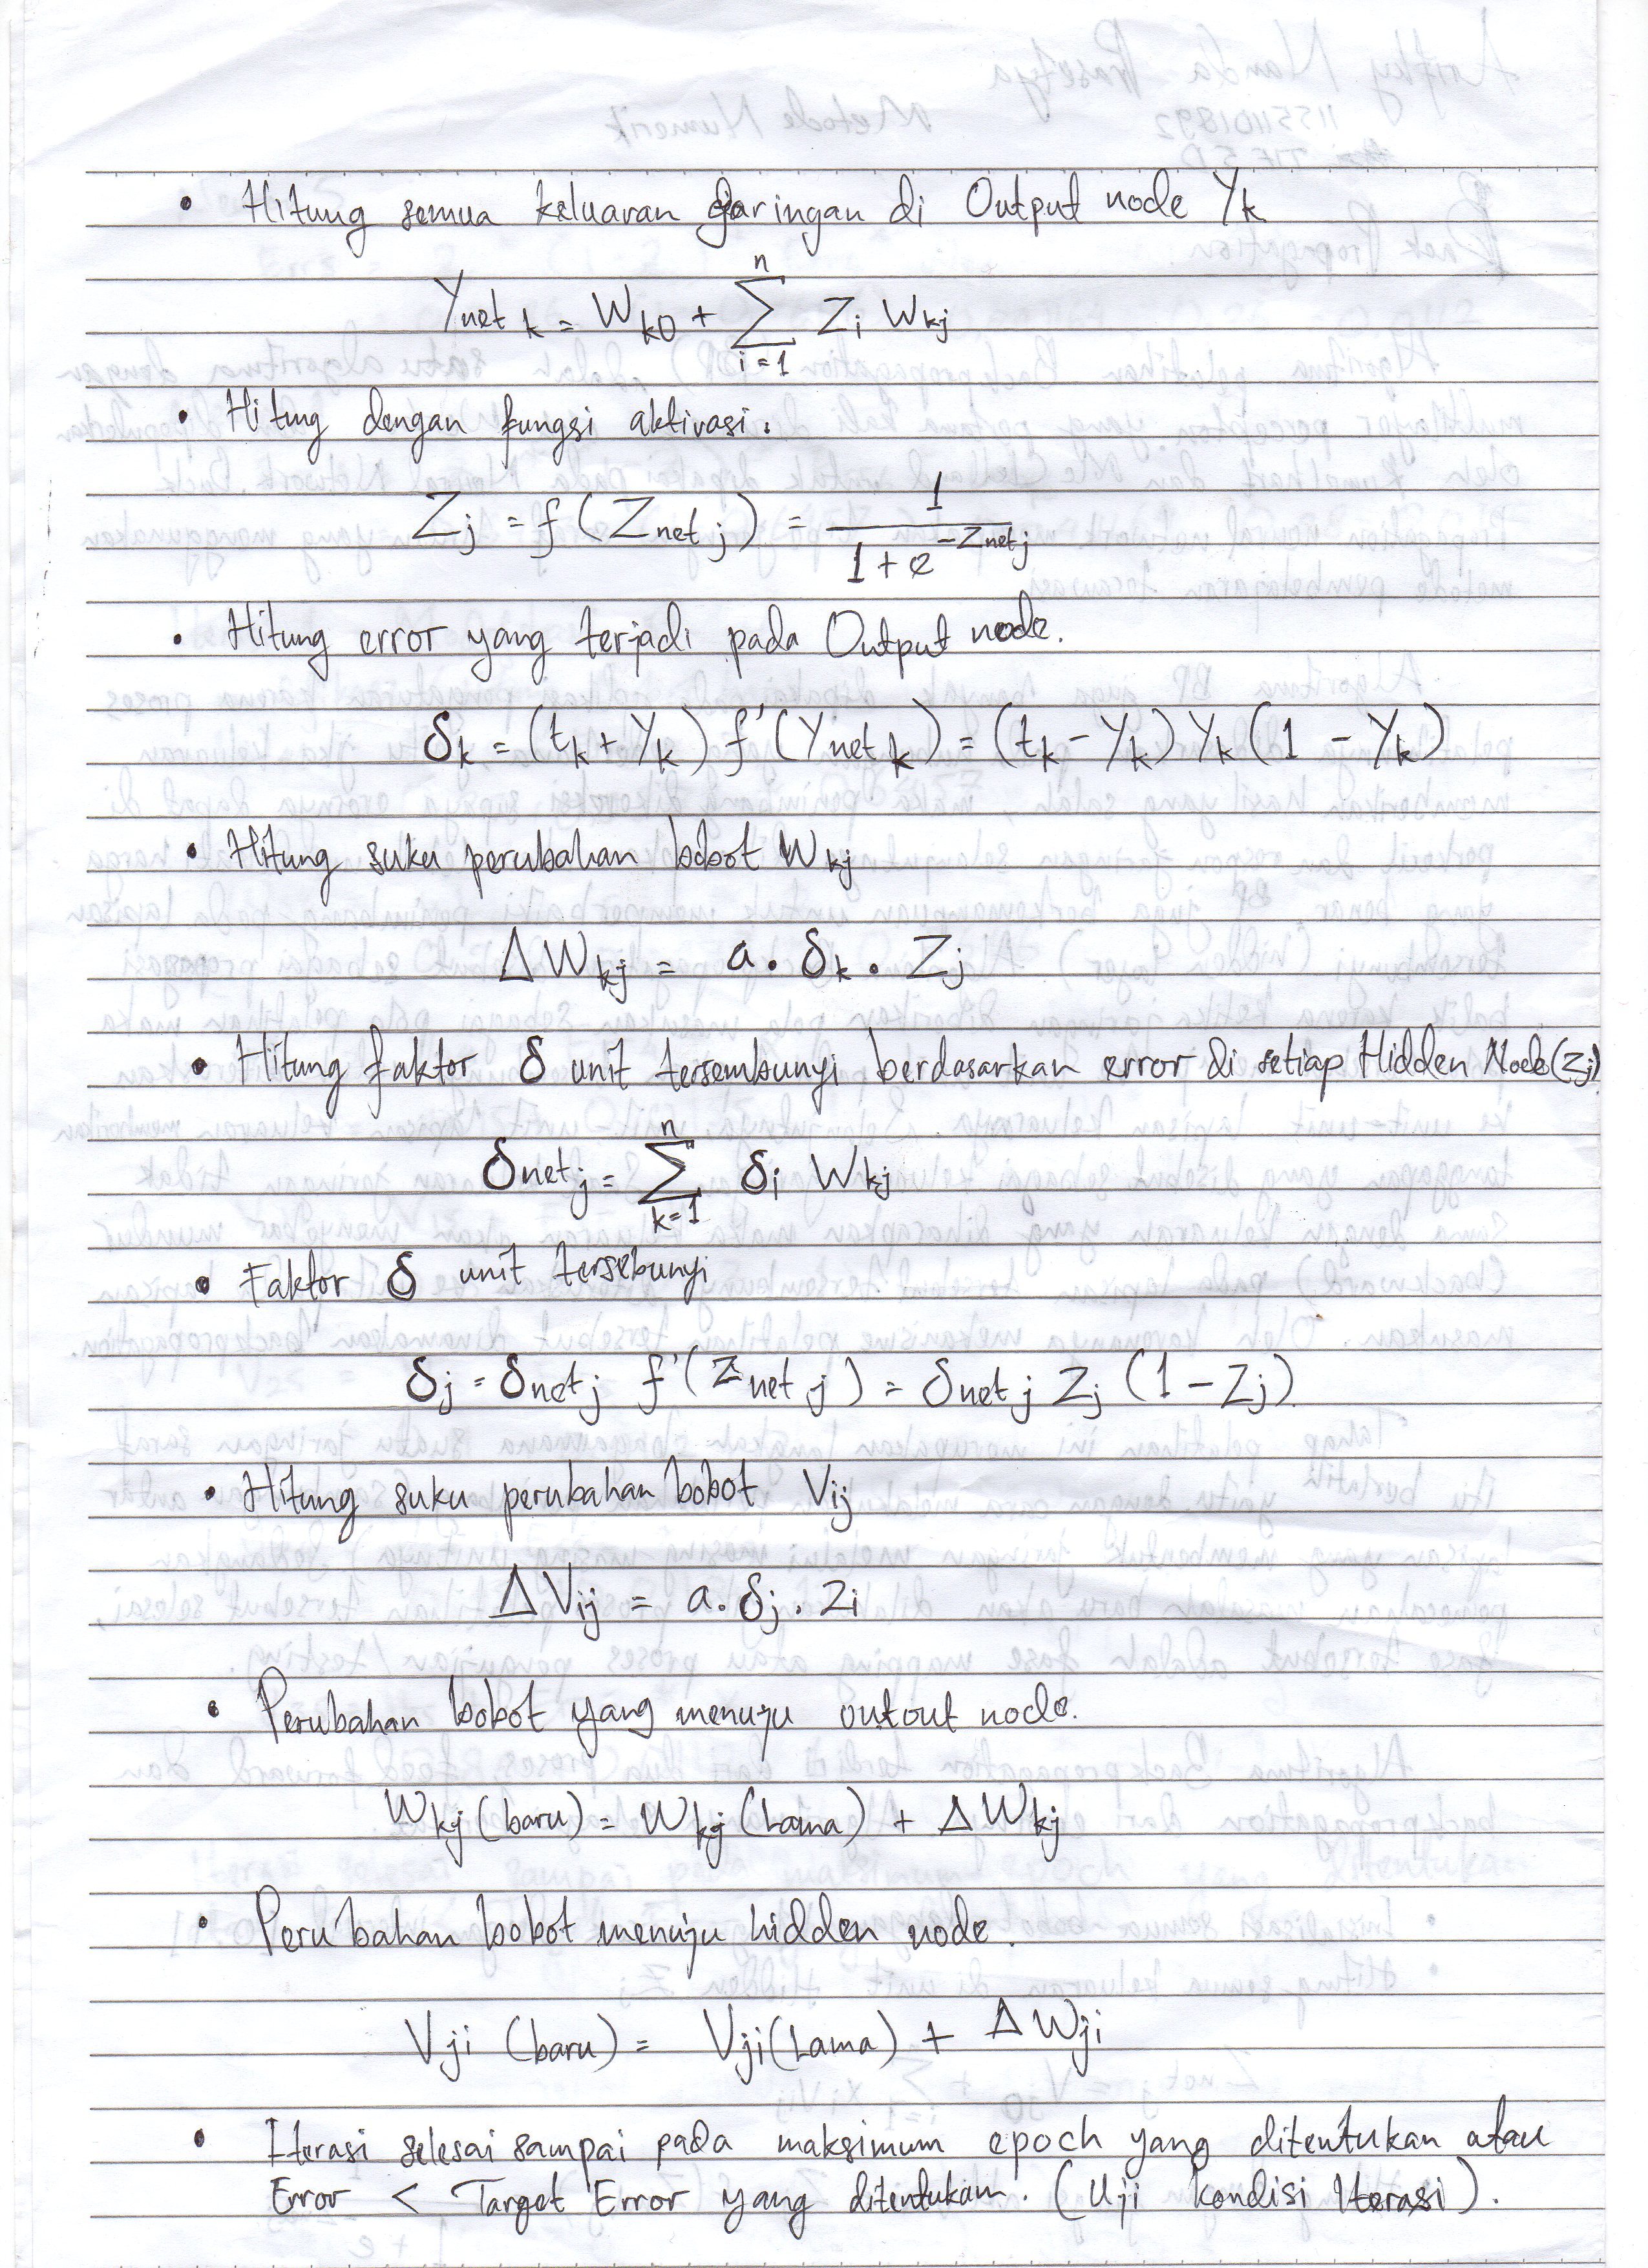 • Hitung semua keluaran jaringan di Output node Yk
Ynet k = Wk0 + n∑i=1 Zi Wkj
• Hitung dengan fungsi aktivasi.
Zj = f(Znet j) = 1 / 1 + e^-Znet j
• Hitung error yang terjadi pada Output node.
δk = (tk + Yk) f'(Ynet k) = (tk - Yk) Yk (1 - Yk)
• Hitung suku perubahan bobot Wkj
ΔWkj = a . δk . Zj
• Hitung faktor δ unit tersembunyi berdasarkan error di setiap Hidden Node (Zj)
δnet j = n∑k=1 δi Wkj
• Faktor δ unit tersebunyi
δj = δnet j f'(Znet j) = δnet j Zj (1 - Zj)
• Hitung suku perubahan bobot Vij
ΔVij = a . δj . Zi
• Perubahan bobot yang menuju outout node.
Wkj (baru) = Wkj (Lama) + ΔWkj
• Perubahan bobot menuju hidden node.
Vji (baru) = Vji (Lama) + ΔWji
• Iterasi selesai sampai pada maksimum epoch yang ditentukan atau
Error < Target Error yang ditentukan. (Uji kondisi Iterasi).